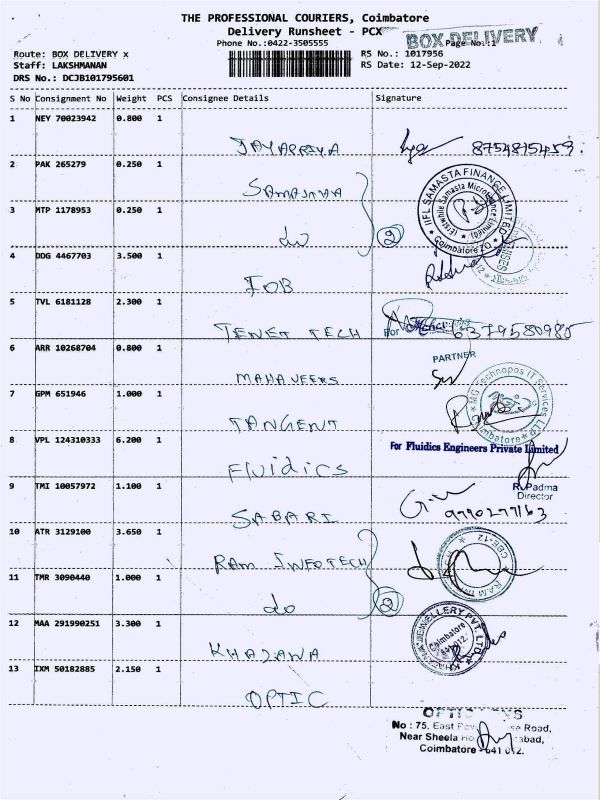 THE PROFESSIONAL COURIERS, Coimbatore
Delivery Runsheet - PCX
BOX DELIVERY
Phone No.:0422-3505555
Page No.:1
Route: BOX DELIVERY x
RS No.: 1017956
Staff: LAKSHMANAN
RS Date: 12-Sep-2022
DRS No.: DCJB101795601
S No Consignment No Weight PCS Consignee Details Signature
1 NEY 70023942 0.800 1
JAYAPRIYA 8754875459.
2 PAK 265279 0.250 1
SAMASTHA
IIFL SAMASTA FINANCE LIMITED
Coimbatore
3 MTP 1178953 0.250 1
do 2
4 DDG 4467703 3.500 1
IOB
5 TVL 6181128 2.300 1
TENET TECH
For
6379580985
PARTNER
6 ARR 10268704 0.800 1
MAHAVEERS
7 GPM 651946 1.000 1
TANGENT
MG Technopos IT Services LLP
Coimbatore
8 VPL 124310333 6.200 1
For Fluidics Engineers Private Limited
Fluidics
R. Padma
Director
9 TMI 10057972 1.100 1
SABARI
9790277163
10 ATR 3129100 3.650 1
RAM INFOTECH
CBE-12
11 TMR 3090440 1.000 1
do 2
12 MAA 291990251 3.300 1
KHAZANA
KHAZANA JEWELLERY PVT. LTD.
Coimbatore
13 IXM 50182885 2.150 1
OPTIC
No : 75, East Road,
Near Sheela
Coimbatore - 641 012.